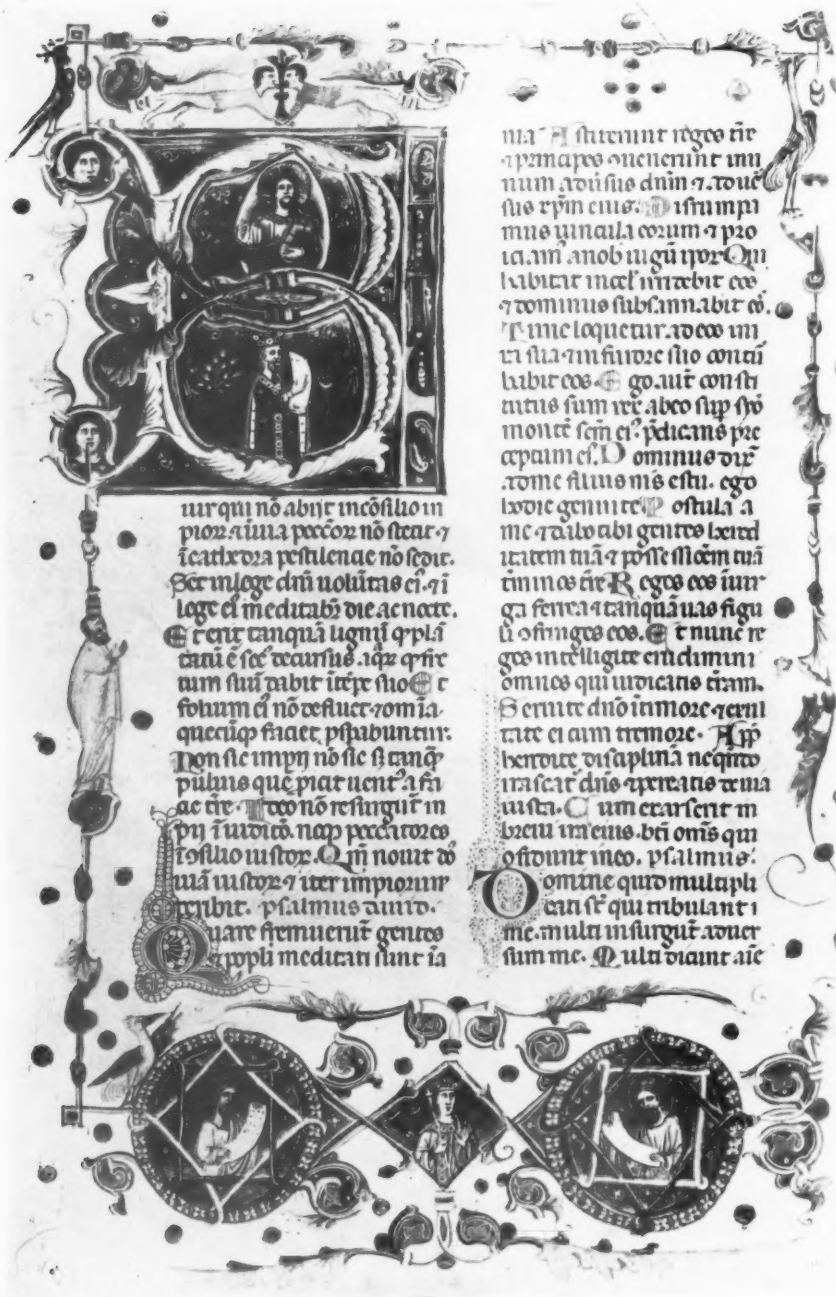 uir qui nõ abijt in cõsilio in
pior ⁊ ĩ uia peccor nõ stetit ⁊
ĩ cathedra pestilencie nõ sedit.
Set in lege dnĩ uolũtas ei. ⁊ ĩ
lege ei meditabr̃ die ac nocte.
Et erit tanquã lignũ qď plã
tatũ ẽ sec decursus aqr̃ qď fre
tum suũ dabit ĩ tẽpe suo Et
folium ei nõ defluet ⁊ om̃ia
quecũq faciet pspabuntur.
Non sic impij nõ sic sʒ tanq̃
puluis quẽ picit uentᵒ a fa
cie tr̃e. Ideo nõ resurgũt im
pij ĩ iudicõ. neqʒ peccatores
ĩ ꝯsilio iustor. Qm̃ nouit dõ
uiã iustor ⁊ iter impiorum
peribit. psalmus dauid.
Quare fremuerũt gentes
⁊ ppli meditati sunt ĩa
nia Astiterunt reges tr̃e
⁊ principes ꝯuenerunt in u
num aduʼsus dnm ⁊ aduʼe
sus xpm eius. Disrumpa
mus uincula eorum ⁊ pro
iciamᵒ a nob iugũ ipor Qui
habitat in cel irridebit eos
⁊ dominus subsannabit eõ.
Tunc loquetur ad eos in i
ra sua ⁊ in furore suo contũ
babit eos. Ego aut̃ consti
tutus sum rex ab eo sup syõ
montẽ scm̃ eiᵒ. pdicans pre
ceptum ei. Dominus dix̃
ad me filius mẽs es tu. ego
hodie genui te Postula a
me ⁊ dabo tibi gentes hered
itatem tuã ⁊ possessiõem tuã
tminos tr̃e Reges eos ĩ uir
ga ferrea ⁊ tanquã uas figu
li ꝯfringes eos. Et nunc re
ges intelligite erudimini
omnes qui iudicatis tr̃am.
Seruite dnõ ĩ timore ⁊ exul
tate ei cum tremore. App
hendite disciplinã neqñdo
irascat̃ dns ⁊ pereatis de uia
iusta. Cum exarserit in
breui ira eius. bti oms qui
ꝯfidunt in eo. psalmus.
Domine quid multipli
cati st̃ qui tribulant
me. multi insurgũt aduer
sum me. Multi dicunt aĩe